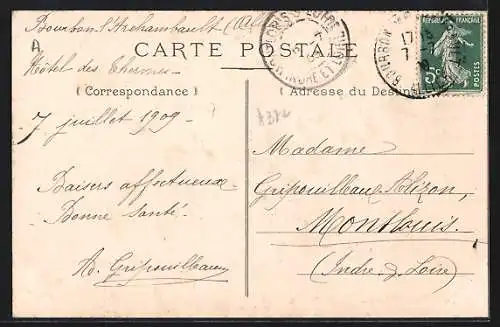 Bourbon l'Archambault (All
A
CARTE POSTALE
Hôtel des Thermes
(Correspondance)
(Adresse du Destin
7 juillet 1909.
Baisers affectueux.
Bonne santé.
A. Gripouilleau
Madame
Gripouilleau Alizon,
Montlouis.
(Indre & Loire)
INDRE ET LOIRE
BOURBON
17
7
ALLIER
REPUBLIQUE FRANÇAISE
5c
POSTES